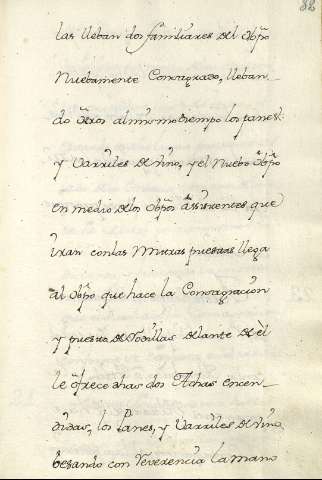 82
las lleban dos familiares del obpo
Nuebamente Consagrado, lleban-
do otros al mismo tiempo los panes
y Varriles de vino, y el Nuebo obpo
en medio de los obpos assistentes que
iran con las Mitras puestas llega
al obpo que hace la Consagracion
y puesto de Rodillas delante de èl
le ofrece dhas dos Achas encen-
didas, los Panes, y Varriles de vino,
besando con Reverencia la mano